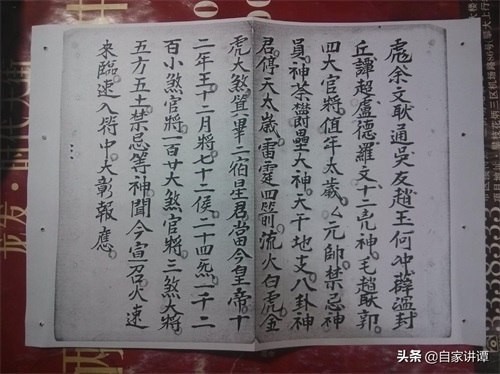 虎余文耿通吳友趙玉一何冲薛溫封
丘譚趙盧德羅文十二元神毛趙耿郭
四大官將值年太歲厶元帥禁忌神
員神荼鬱壘大神天干地支八卦神
君停天太歲雷霆四箭流火白虎金
虎大煞箕畢二宿星君當今皇帝十
二年王十二月將七十二侯二十四炁一千二
百小煞官將一百廿大煞官將三煞大將
五方五土禁忌等神聞今宣召火速
來臨速入符中大彰報應
龙发·时代大街
头条 @自家讲谭